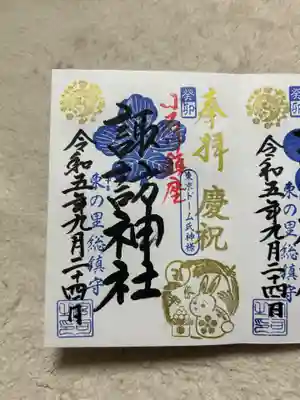 奉拝 慶祝
癸卯
東京ドーム氏神様
小石川鎮座
諏訪神社
東の里総鎮守
令和五年九月二十四日
癸卯
東の里総鎮守
令和五年九月二十四日